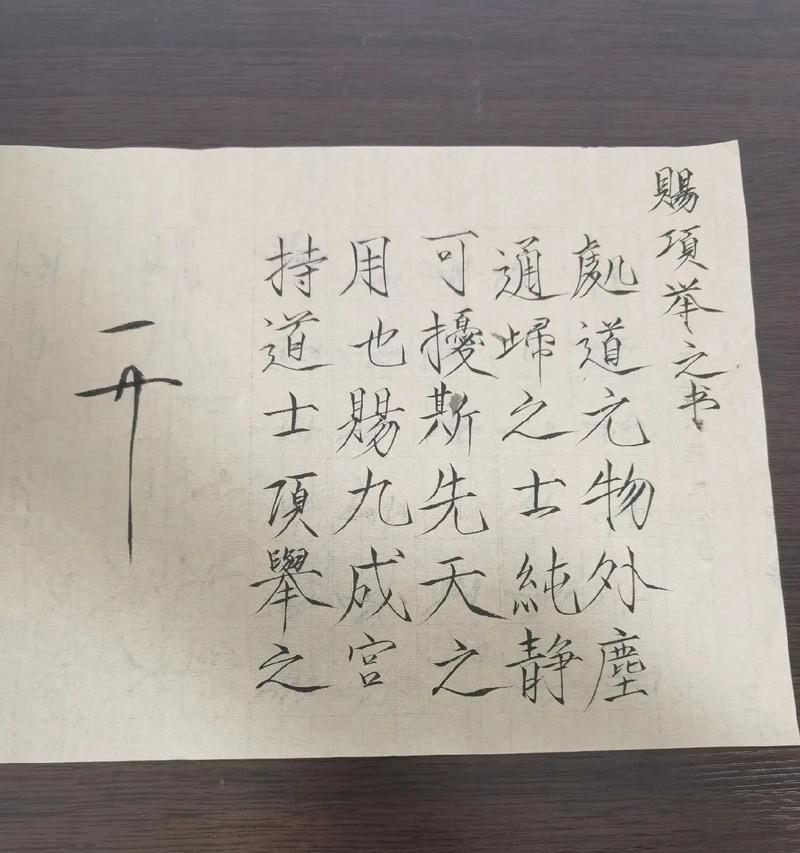 賜項举之书
處道元物外塵
通歸之士純静
可擾斯先天之
用也賜九成宮
持道士項舉之